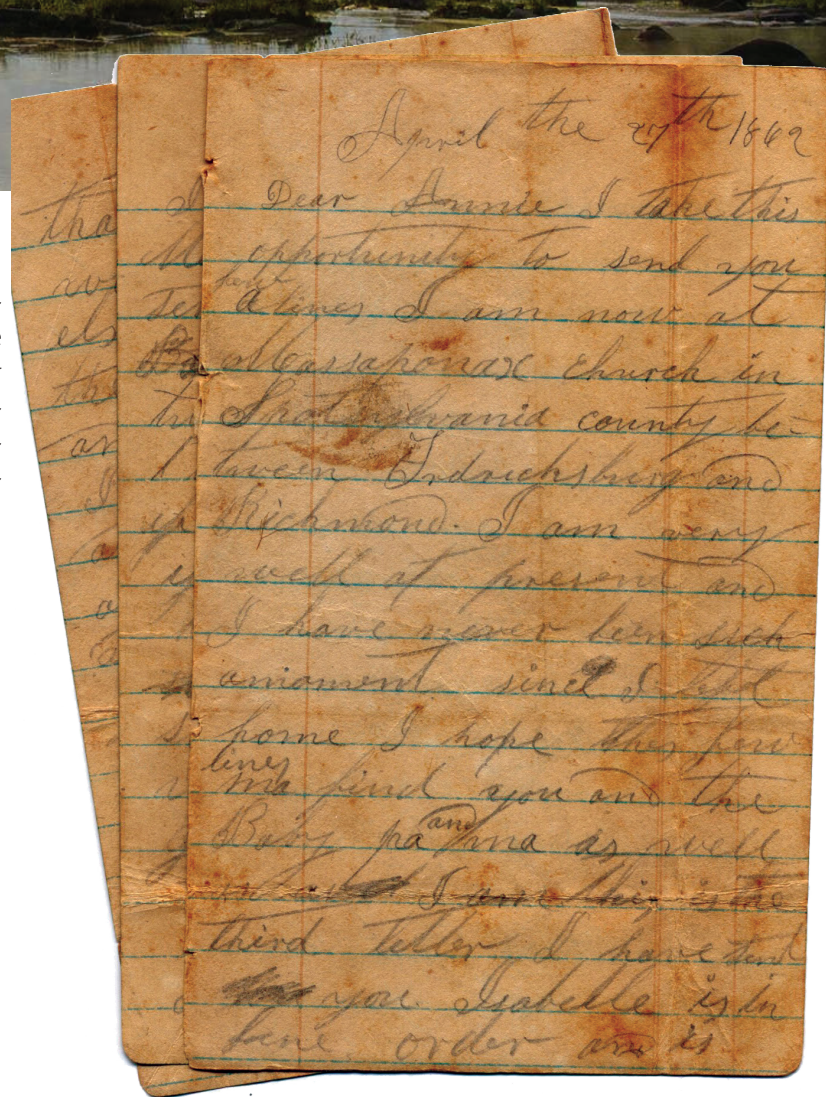 April the 27th 1862
Dear Annie I take this
opportunity to send you
a few lines I am now at
Massaponax church in
Spotsylvania county be-
tween Fredricksburg and
Richmond. I am very
well at present and
I have never been sick
amoment since I left
home I hope this few
lines
ma find you and the
Baby pa and ma as well
I am this is the
third letter I have send
you. Isabelle is in
fine order and is
tha
I
M
Ter
els
the
an